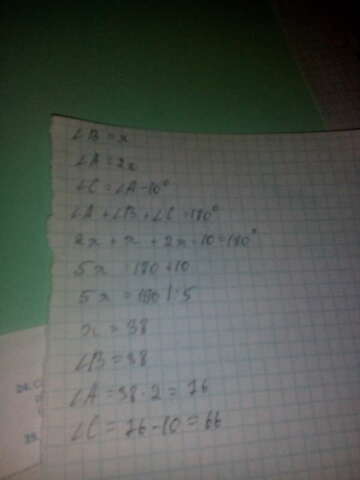 ∠B = x
∠A = 2x
∠C = ∠A - 10°
∠A + ∠B + ∠C = 180°
2x + x + 2x - 10 = 180°
5x = 180 + 10
5x = 190 | : 5
x = 38
∠B = 38
∠A = 38 · 2 = 76
∠C = 76 - 10 = 66